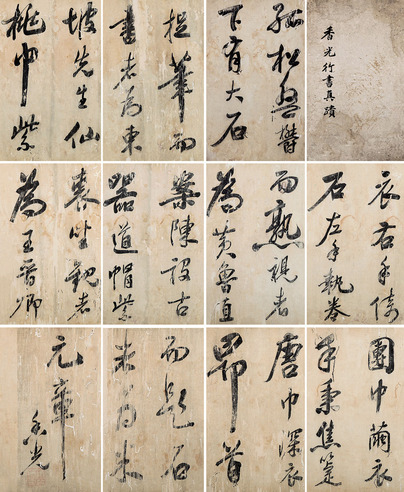 香光行書真蹟
孤松盤鬱
下有大石
捉筆而
書者為東
坡先生仙
桃巾紫
衣右手倚
石左手執卷
而熟視者
為黃魯直
案陳設古
器道帽紫
裘坐觀者
為王晉卿
團巾繭衣
手秉焦箑
唐巾深衣
昂首
而題石
者為米
元章
香光